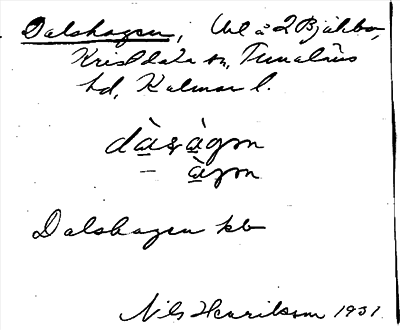 Dalshagen, Utl å 2 Bjälebo,
Kristdala sn, Tunaläns
hd, Kalmar l.
dàsàgən
– àgən
Dalshagen kb
Nils Henrikson 1931